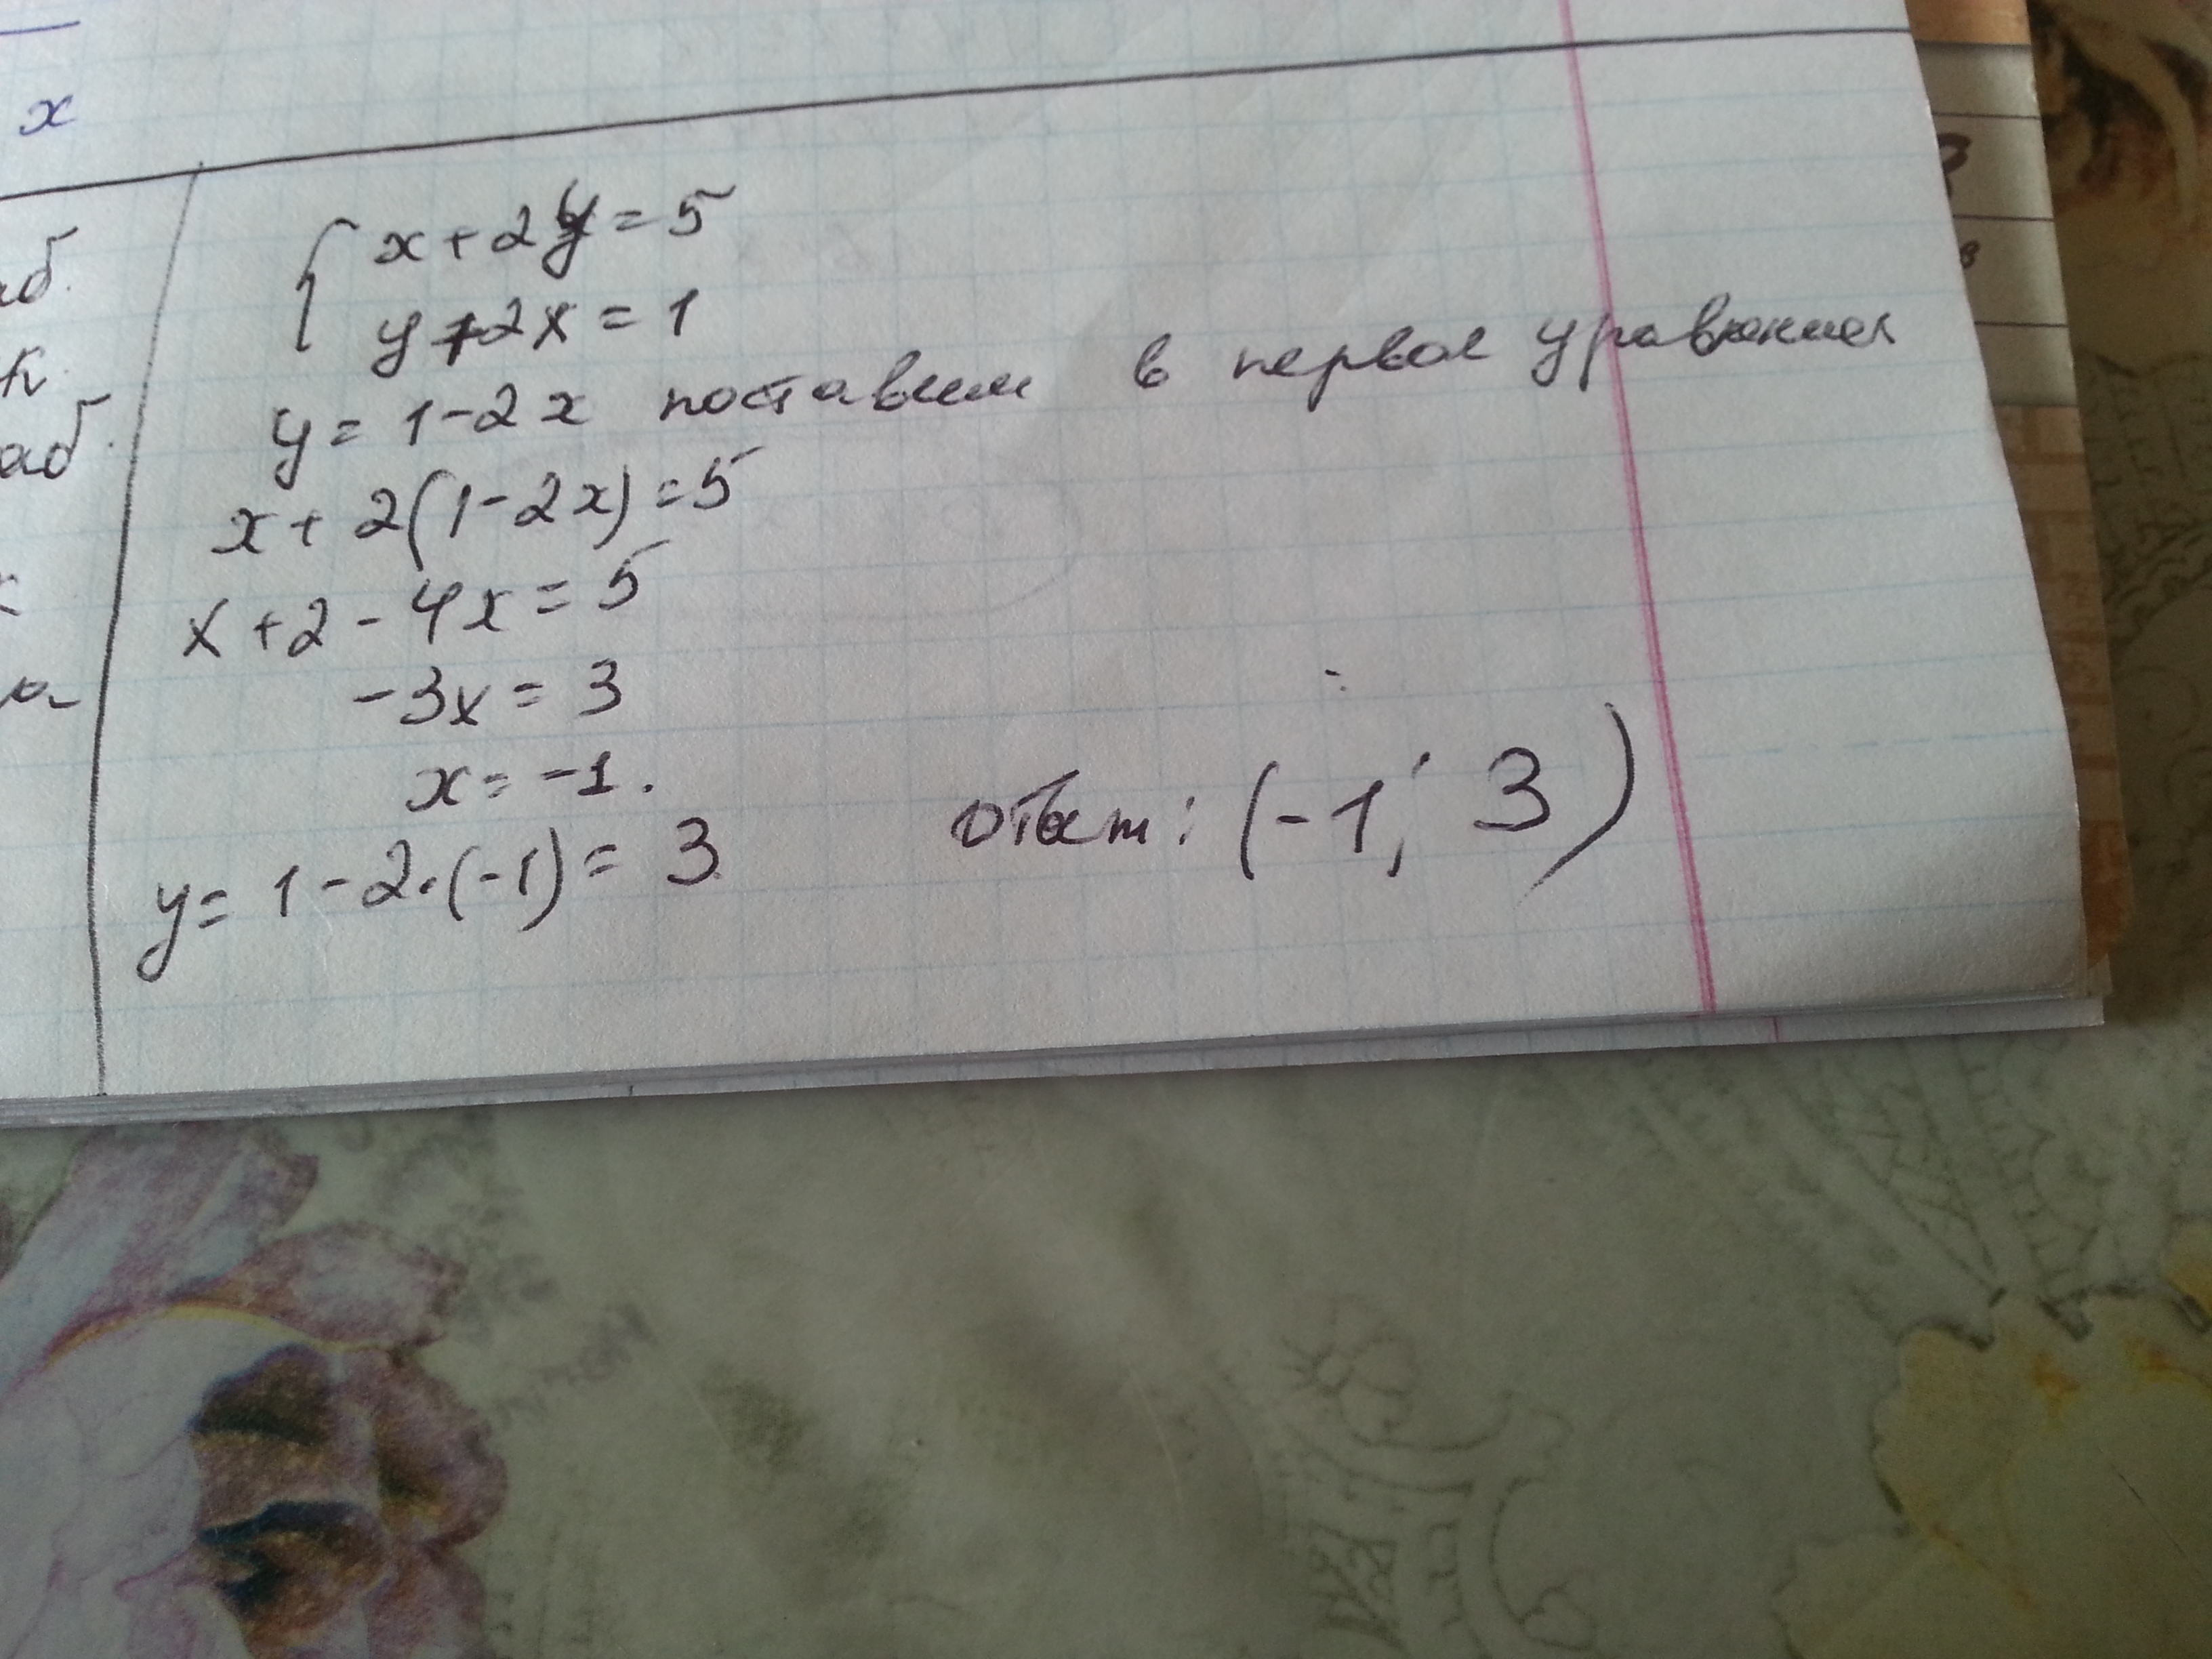 x
аб.
к.
аб.
{ x + 2y = 5
y + 2x = 1
y = 1 - 2x поставим в первое уравнение
x + 2(1 - 2x) = 5
x + 2 - 4x = 5
-3x = 3
x = -1.
y = 1 - 2·(-1) = 3
ответ: (-1; 3)